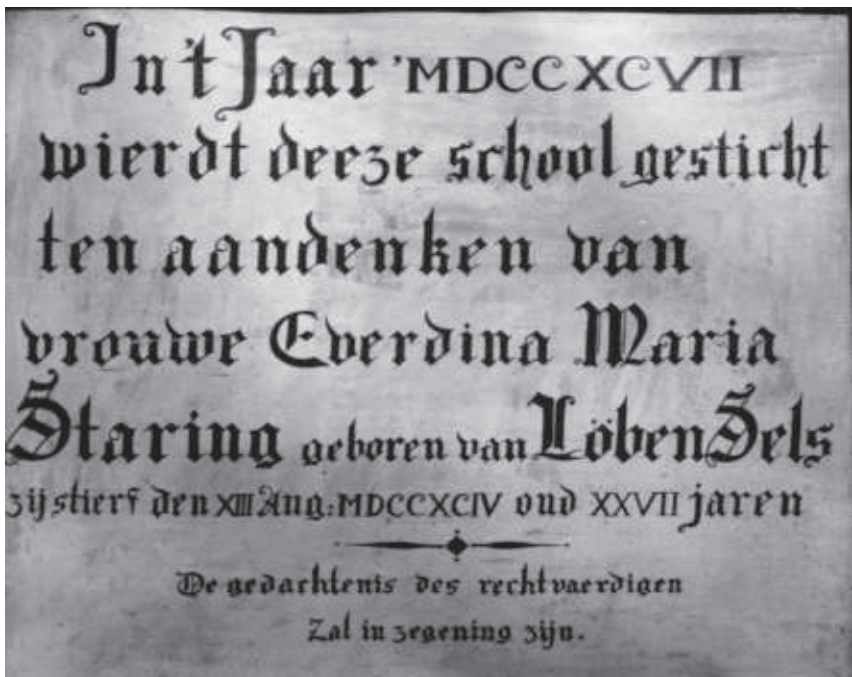 In't Jaar 'MDCCXCVII
wierdt deeze school gesticht
ten aandenken van
vrouwe Everdina Maria
Staring geboren van Löben Sels
zij stierf den XIII Aug: MDCCXCIV oud XXVII jaren
De gedachtenis des rechtvaerdigen
Zal in zegening zijn.